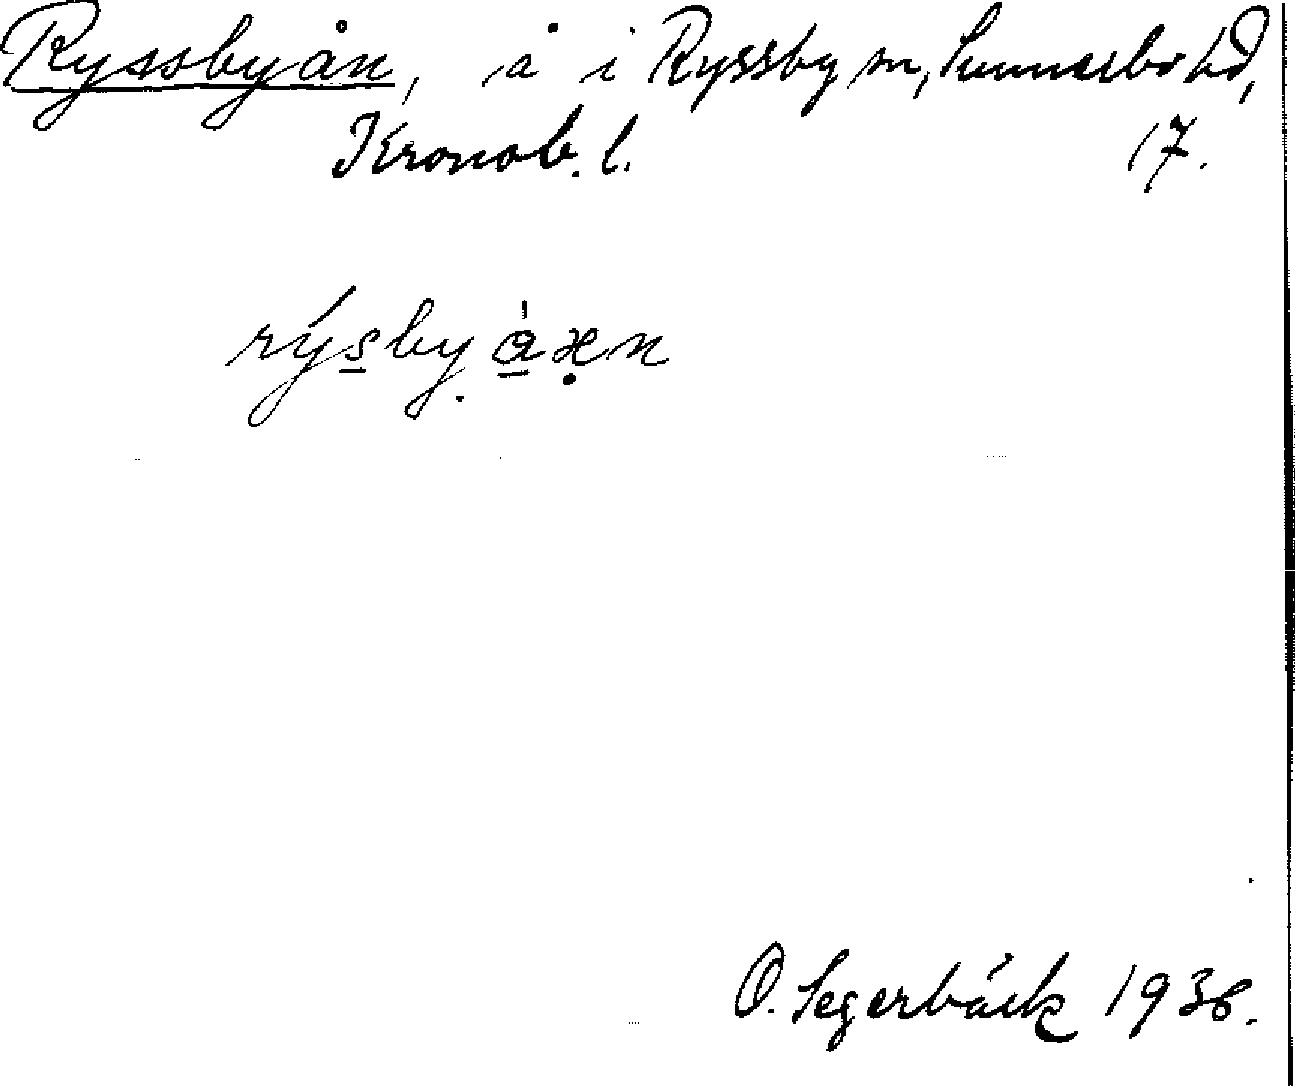 Ryssbyån, å i Ryssby sn, Sunnerbo hd,
Kronob. l. 17.
rýs̲bỵ å̲æ̣n
O. Segerbäck 1936.